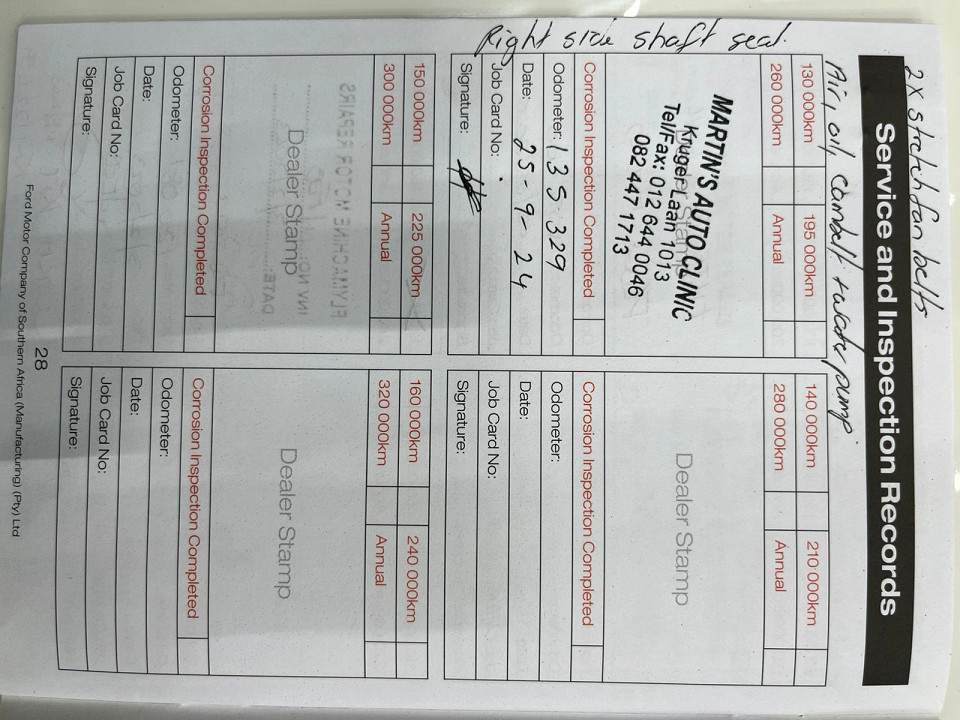 2x stretch fan belts
Service and Inspection Records
Air, oil, cambelt + water pump
130 000km 195 000km
260 000km Annual
Dealer Stamp
MARTIN'S AUTO CLINIC
Kruger Laan 1013
Tel/Fax: 012 644 0046
082 447 1713
Corrosion Inspection Completed
Odometer: 135 329
Date: 25-9-24
Job Card No:
Signature:
Right side shaft seal.
140 000km 210 000km
280 000km Annual
Dealer Stamp
Corrosion Inspection Completed
Odometer:
Date:
Job Card No:
Signature:
150 000km 225 000km
300 000km Annual
Dealer Stamp
Corrosion Inspection Completed
Odometer:
Date:
Job Card No:
Signature:
160 000km 240 000km
320 000km Annual
Dealer Stamp
Corrosion Inspection Completed
Odometer:
Date:
Job Card No:
Signature:
28
Ford Motor Company of Southern Africa (Manufacturing) (Pty) Ltd